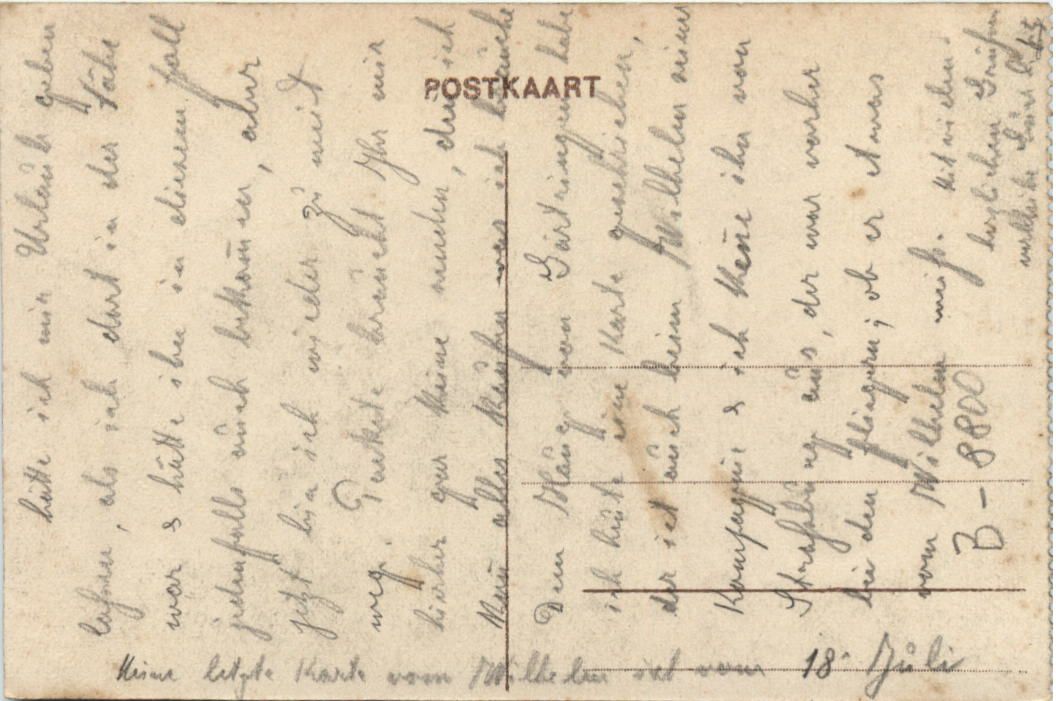 POSTKAART
hätte ich mir Urlaub geben
lassen, als ich dort in der Nähe
war & hätte ihn in diesem Fall
jedenfalls auch bekommen, aber
jetzt bin ich wieder zu weit
weg. Pakete braucht Ihr mir
hierher gar keine machen, denn ich
kann alles kaufen was ich brauche
Dem Haug von Gärtringen habe
ich heute eine Karte geschrieben,
der ist auch beim Wilhelm seiner
Kompagnie & ich kenne ihn von
Straßburg aus, der war vorher
bei den Fliegern; ob er etwas
vom Wilhelm weiß. Mit vielen
herzlichen Grüßen
verbleibe Euer
B - 8800
Meine letzte Karte vom Wilhelm ist vom 18. Juli